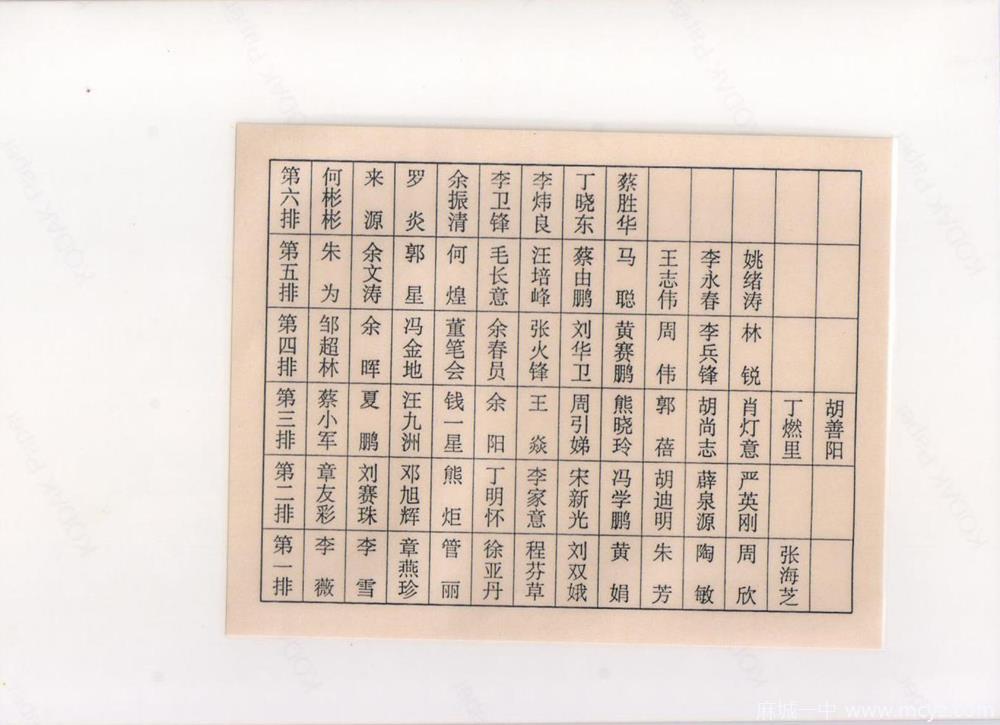 第六排 何彬彬 来源 罗炎 余振清 李卫锋 李炜良 丁晓东 蔡胜华
第五排 朱为 余文涛 郭星 何煌 毛长意 汪培峰 蔡由鹏 马聪 王志伟 李永春 姚绪涛
第四排 邹超林 余晖 冯金地 董笔会 余春员 张火锋 刘华卫 黄赛鹏 周伟 李兵锋 林锐
第三排 蔡小军 夏鹏 汪九洲 钱一星 余阳 王焱 周引娣 熊晓玲 郭蓓 胡尚志 肖灯意 丁燃里 胡善阳
第二排 章友彩 刘赛珠 邓旭辉 熊炬 丁明怀 李家意 宋新光 冯学鹏 胡迪明 薜泉源 严英刚
第一排 李薇 李雪 章燕珍 管丽 徐亚丹 程芬草 刘双娥 黄娟 朱芳 陶敏 周欣 张海芝
KODAK Paper
麻城一中 www.mcyz.com